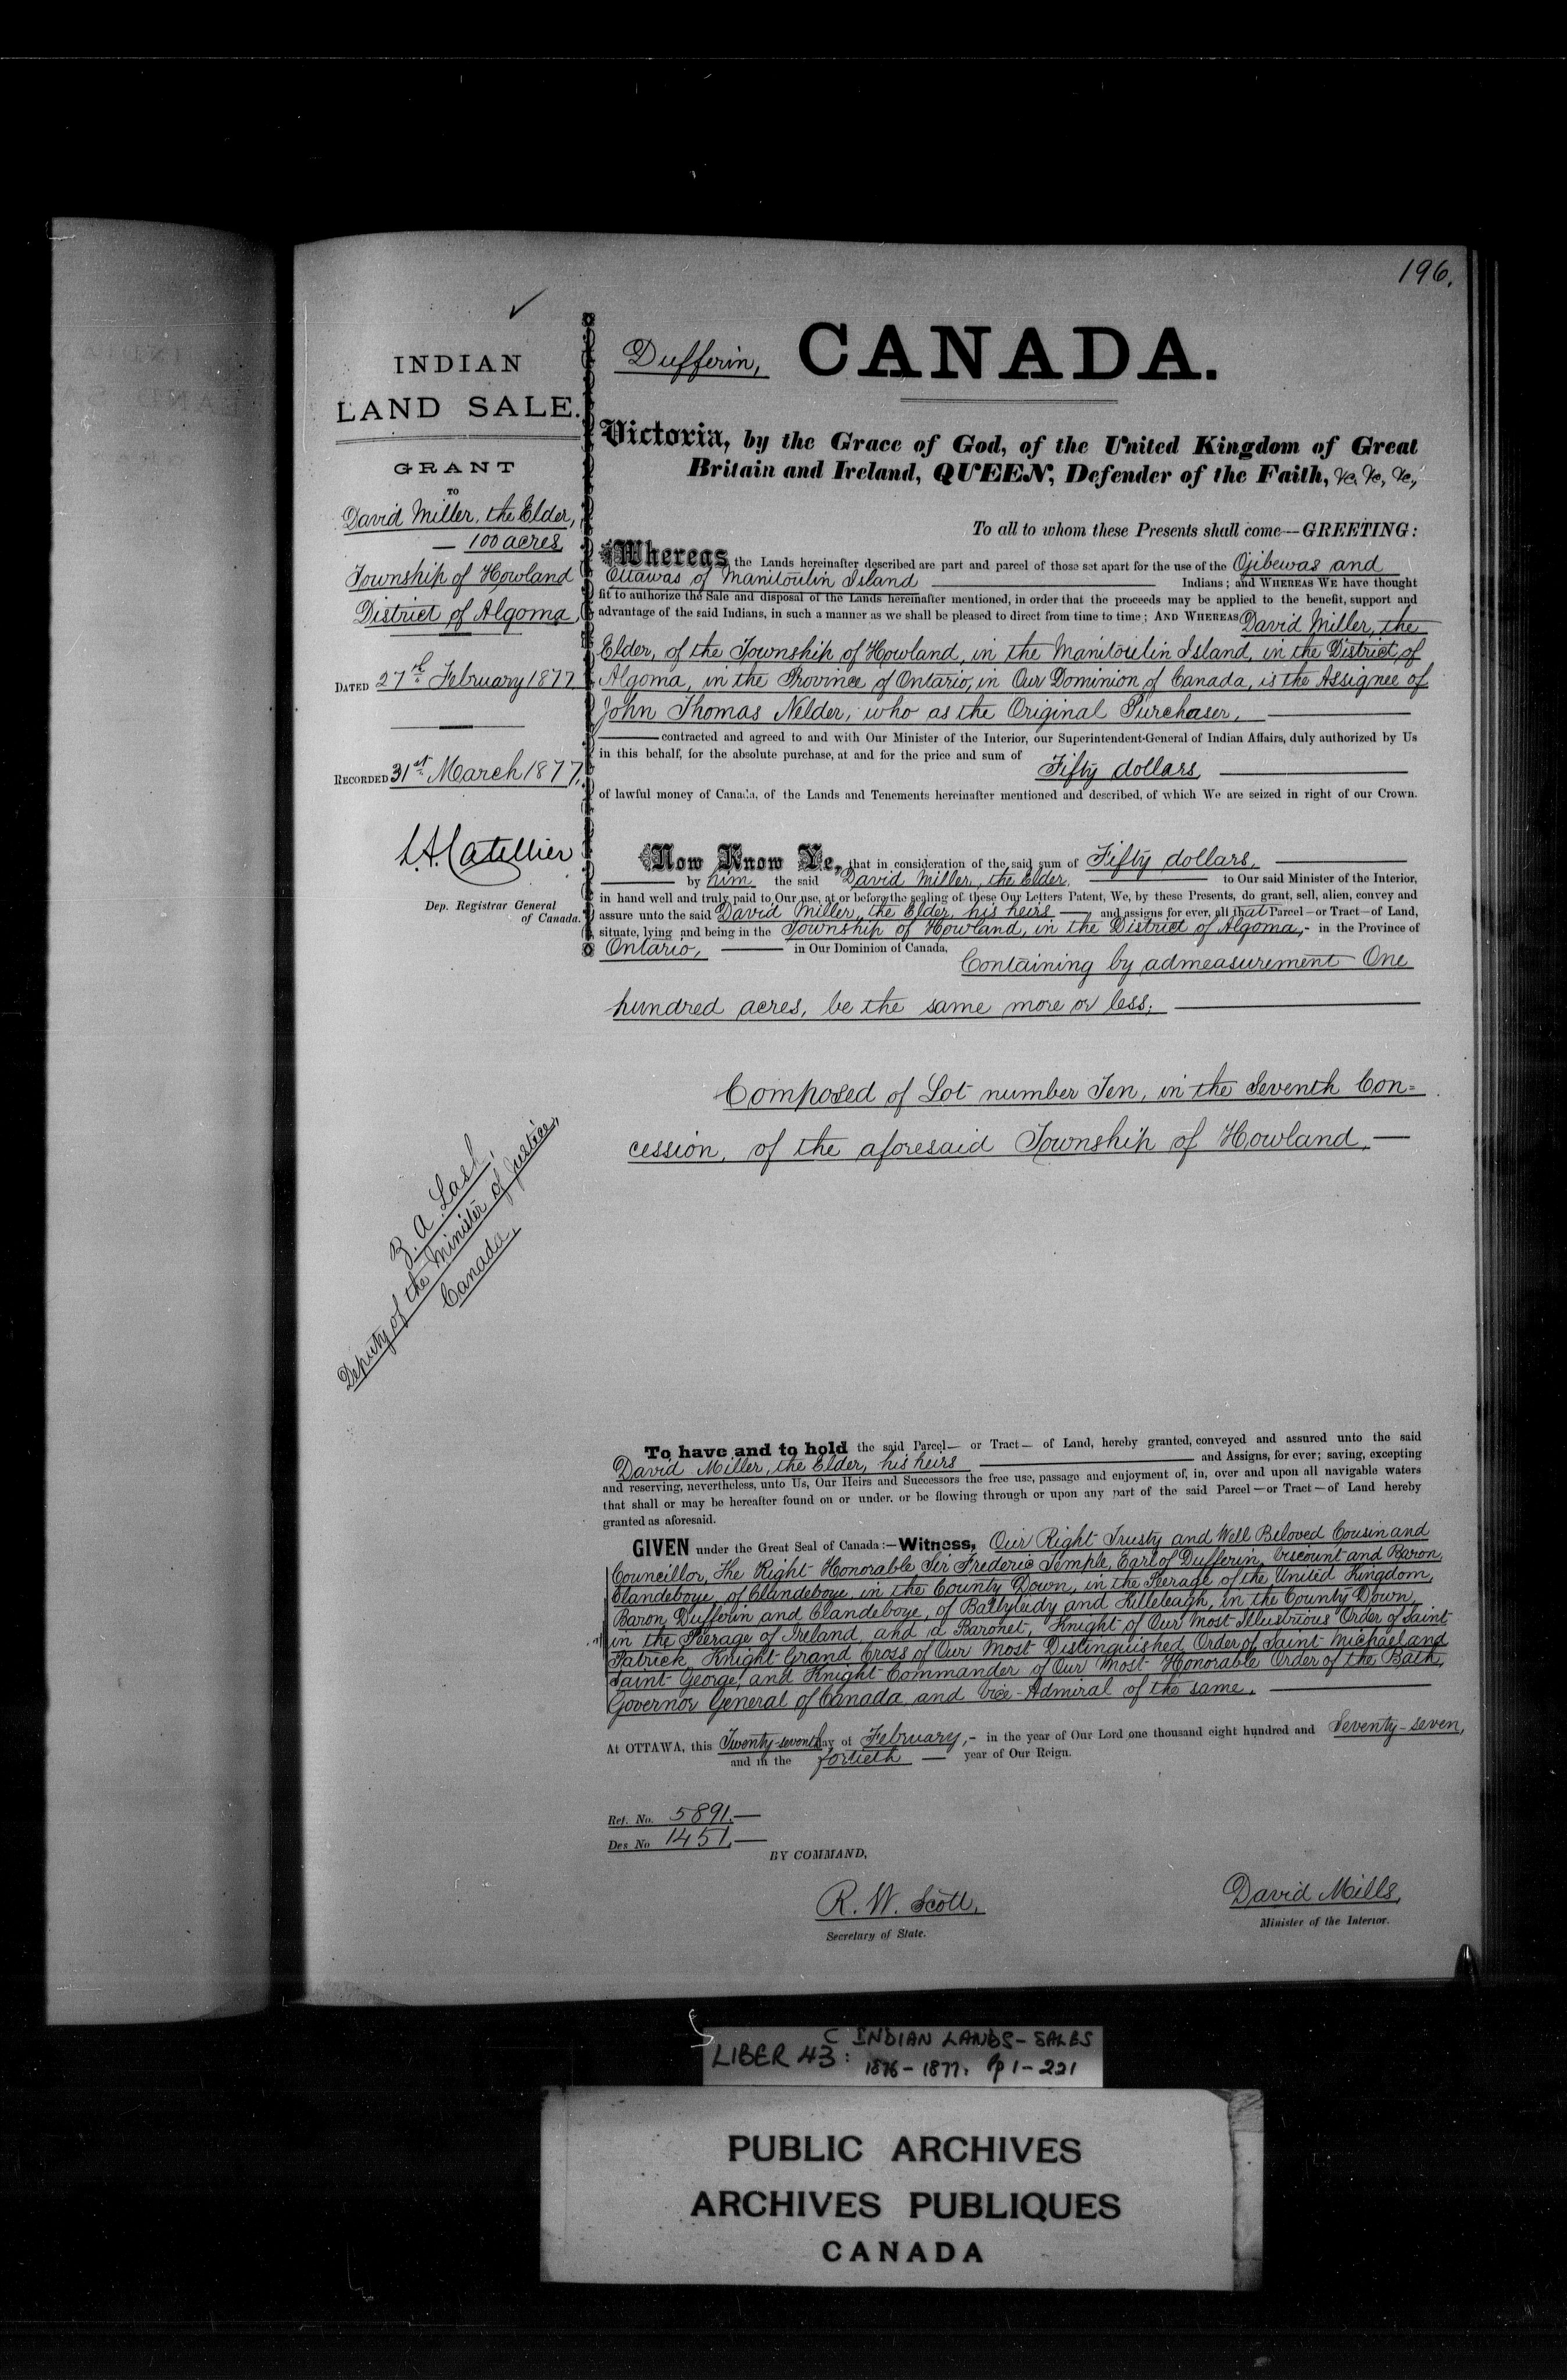 196.
INDIAN
LAND SALE.
GRANT
TO
David Miller, the Elder,
— 100 acres
Township of Howland
District of Algoma,
DATED 27th February 1877.
RECORDED 31st March 1877.
L.A. Catellier
Dep. Registrar General
of Canada.
Z. A. Lash,
Deputy of the Minister of Justice,
Canada.
Dufferin, CANADA.
Victoria, by the Grace of God, of the United Kingdom of Great
Britain and Ireland, QUEEN, Defender of the Faith, &c, &c, &c,
To all to whom these Presents shall come—GREETING:
Whereas the Lands hereinafter described are part and parcel of those set apart for the use of the Ojibewas and
Ottawas of Manitoulin Island Indians; and WHEREAS WE have thought
fit to authorize the Sale and disposal of the Lands hereinafter mentioned, in order that the proceeds may be applied to the benefit, support and
advantage of the said Indians, in such a manner as we shall be pleased to direct from time to time; AND WHEREAS David Miller, the
Elder, of the Township of Howland, in the Manitoulin Island, in the District of
Algoma, in the Province of Ontario, in Our Dominion of Canada, is the Assignee of
John Thomas Nelder, who as the Original Purchaser,
contracted and agreed to and with Our Minister of the Interior, our Superintendent-General of Indian Affairs, duly authorized by Us
in this behalf, for the absolute purchase, at and for the price and sum of Fifty dollars
of lawful money of Canada, of the Lands and Tenements hereinafter mentioned and described, of which We are seized in right of our Crown.
Now Know Ye, that in consideration of the said sum of Fifty dollars,
by him the said David Miller, the Elder, to Our said Minister of the Interior,
in hand well and truly paid to Our use, at or before the sealing of these Our Letters Patent, We, by these Presents, do grant, sell, alien, convey and
assure unto the said David Miller, the Elder, his heirs — and assigns for ever, all that Parcel—or Tract—of Land,
situate, lying and being in the Township of Howland, in the District of Algoma,- in the Province of
Ontario, in Our Dominion of Canada, Containing by admeasurement One
hundred acres, be the same more or less;
Composed of Lot number Ten, in the Seventh Con=
cession, of the aforesaid Township of Howland.—
To have and to hold the said Parcel— or Tract— of Land, hereby granted, conveyed and assured unto the said
David Miller, the Elder, his heirs and Assigns, for ever; saving, excepting
and reserving, nevertheless, unto Us, Our Heirs and Successors the free use, passage and enjoyment of, in, over and upon all navigable waters
that shall or may be hereafter found on or under, or be flowing through or upon any part of the said Parcel—or Tract—of Land hereby
granted as aforesaid.
GIVEN under the Great Seal of Canada:—Witness, Our Right Trusty and Well Beloved Cousin and
Councillor, The Right Honorable Sir Frederic Temple, Earl of Dufferin, Viscount and Baron
Clandeboye, of Clandeboye, in the County Down, in the Peerage of the United Kingdom,
Baron Dufferin and Clandeboye, of Ballyleidy and Killeleagh, in the County Down,
in the Peerage of Ireland, and a Baronet, Knight of Our Most Illustrious Order of Saint
Patrick, Knight Grand Cross of Our Most Distinguished Order of Saint Michael and
Saint George, and Knight Commander of Our Most Honorable Order of the Bath,
Governor General of Canada, and Vice-Admiral of the same.
At OTTAWA, this Twenty-seventh day of February,- in the year of Our Lord one thousand eight hundred and Seventy-seven,
and in the fortieth — year of Our Reign.
Ref. No. 5891.—
Des No 1451.—
BY COMMAND,
R. W. Scott,
Secretary of State.
David Mills,
Minister of the Interior.
LIBER 43: C INDIAN LANDS-SALES
1876-1877. Pp 1-221
PUBLIC ARCHIVES
ARCHIVES PUBLIQUES
CANADA